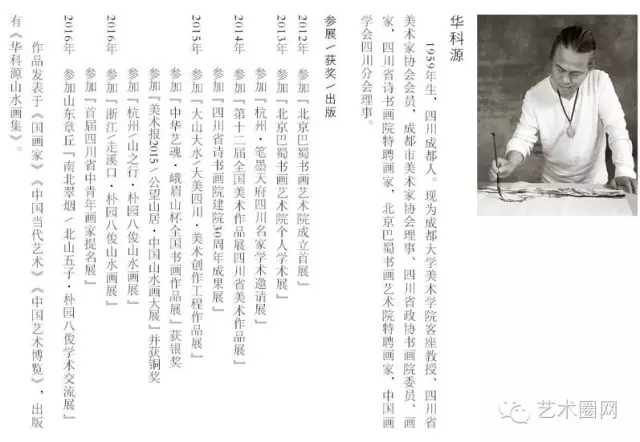 华科源
1959年生，四川成都人。现为成都大学美术学院客座教授、四川省
美术家协会会员，成都市美术家协会理事、四川省政协书画院委员、画
家，四川省诗书画院特聘画家，北京巴蜀书画艺术院特聘画家，中国画
学会四川分会理事。
参展/获奖/出版
2012年 参加『北京巴蜀书画艺术院成立首展』
2013年 参加『北京巴蜀书画艺术院个人学术展』
参加『杭州·笔墨天府四川名家学术邀请展』
2014年 参加『第十二届全国美术作品展四川省美术作品展』
参加『四川省诗书画院建院30周年成果展』
2015年 参加『大山大水/大美四川·美术创作工程作品展』
参加『中华艺魂·峨眉山杯全国书画作品展』获银奖
『美术报2015/公望山居·中国山水画大展』并获铜奖
参加『杭州/山之行·朴园八俊山水画展』
2016年 参加『浙江/走溪口·朴园八俊山水画展』
参加『首届四川省中青年画家提名展』
2016年 参加山东章丘『南北翠烟/北山五子·朴园八俊学术交流展』
作品发表于《国画家》《中国当代艺术》《中国艺术博览》，出版
有《华科源山水画集》。
艺术圈网